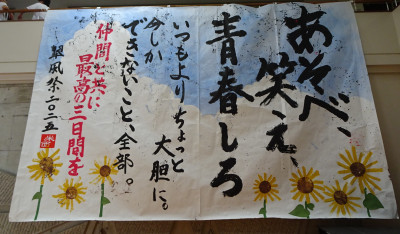 あそべ、
笑え、
青春しろ
いつもよりちょっと
大胆に。
今しか
できないこと、全部。
仲間と共に、
最高の三日間を
翠風祭二〇二五